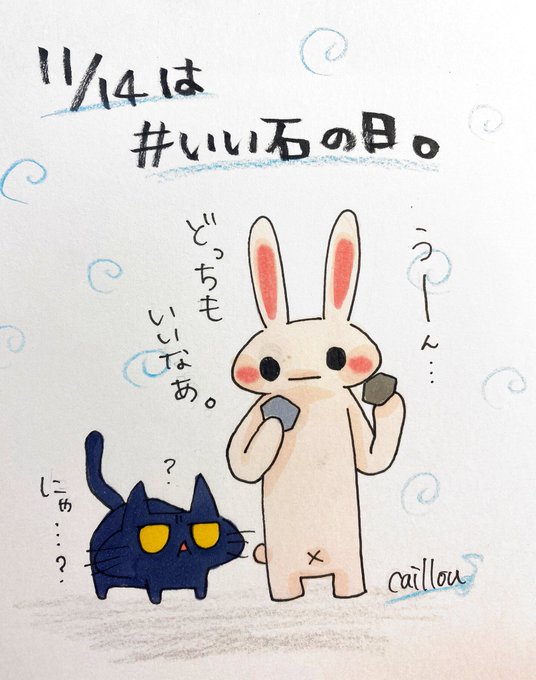 11/14は
#いい石の日。
うーん…
どっちも
いいなあ。
?
にゃ…?
caillou